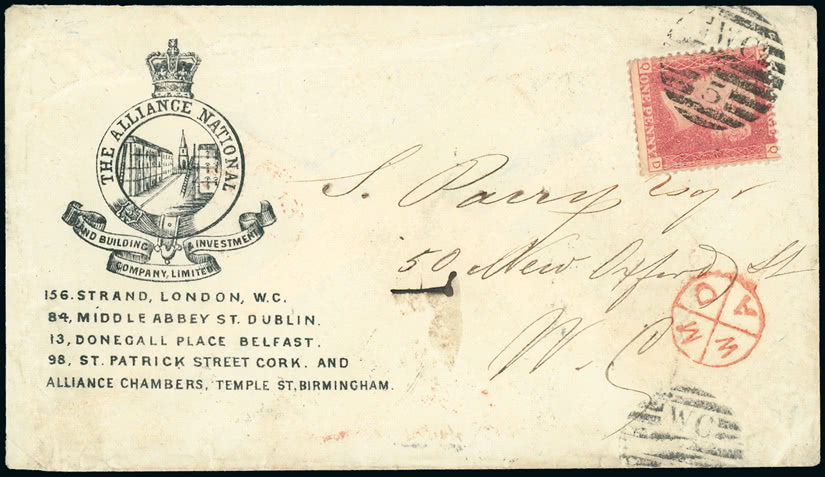 THE ALLIANCE NATIONAL
LAND BUILDING & INVESTMENT
COMPANY, LIMITED
156. STRAND, LONDON, W.C.
84, MIDDLE ABBEY ST. DUBLIN.
13, DONEGALL PLACE BELFAST.
98, ST. PATRICK STREET CORK. AND
ALLIANCE CHAMBERS, TEMPLE ST, BIRMINGHAM.
WC
5
Q
ONE PENNY
D
Q
S. Parry Esqr
50 New Oxford St
W.C.
WC